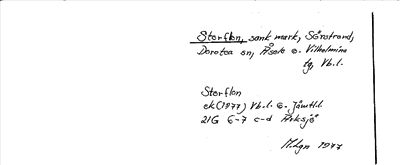 Storflon, sank mark, Sörstrand,
Dorotea sn, Åsele o. Vilhelmina
tg, Vb.l.
Storflon
ek (1977) Vb.l. o. Jämtl.l
21G 6-7 c-d Arksjö
1977